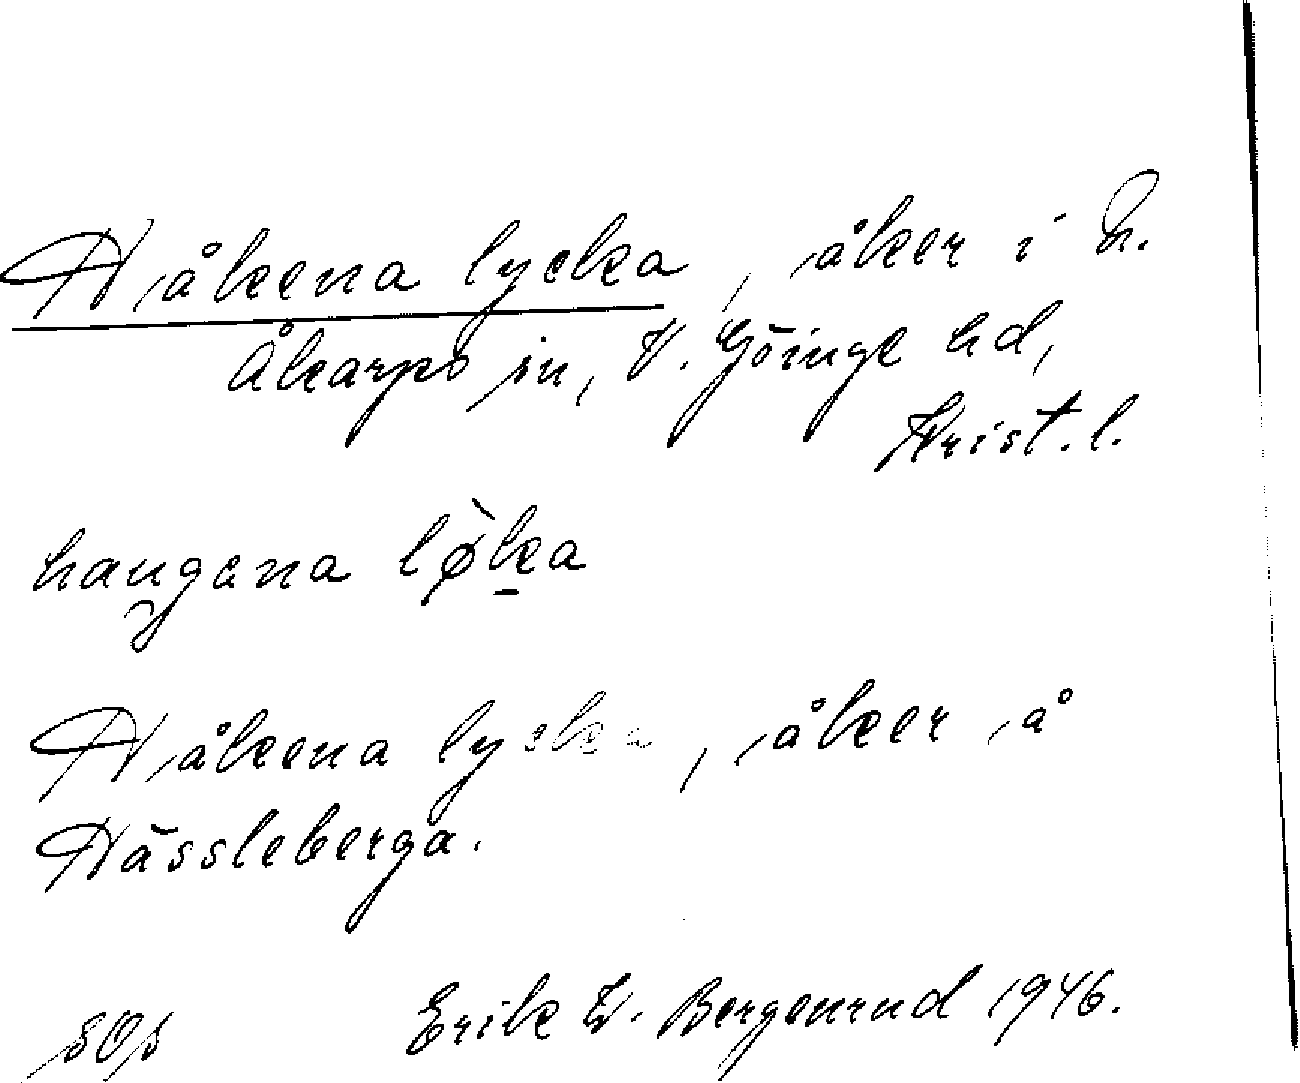 Håkena lycka, åker i N.
Åkarps sn, V. Göinge hd,
Krist. l.
haugana lø̀ka
Håkena lycka, åker å
Hässleberga.
SOS Erik W. Bergenrud 1946.